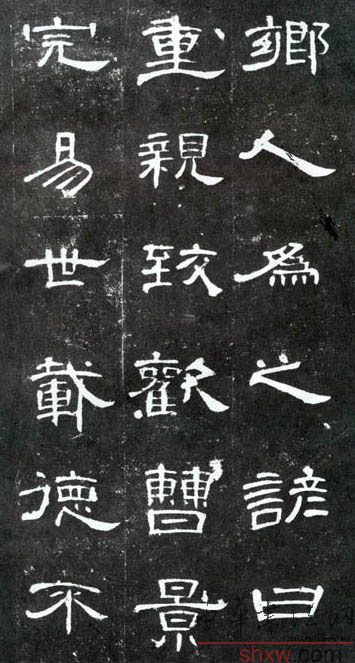 鄉人為之諺曰
重親致歡曹景
完易世載德不
shxw.com